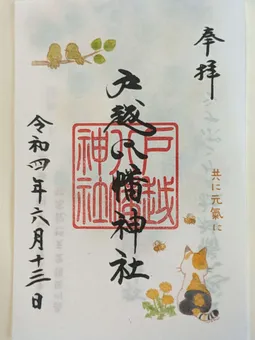 奉拝
戸越八幡神社
戸越
八幡
神社
共に元氣に
令和四年六月十三日